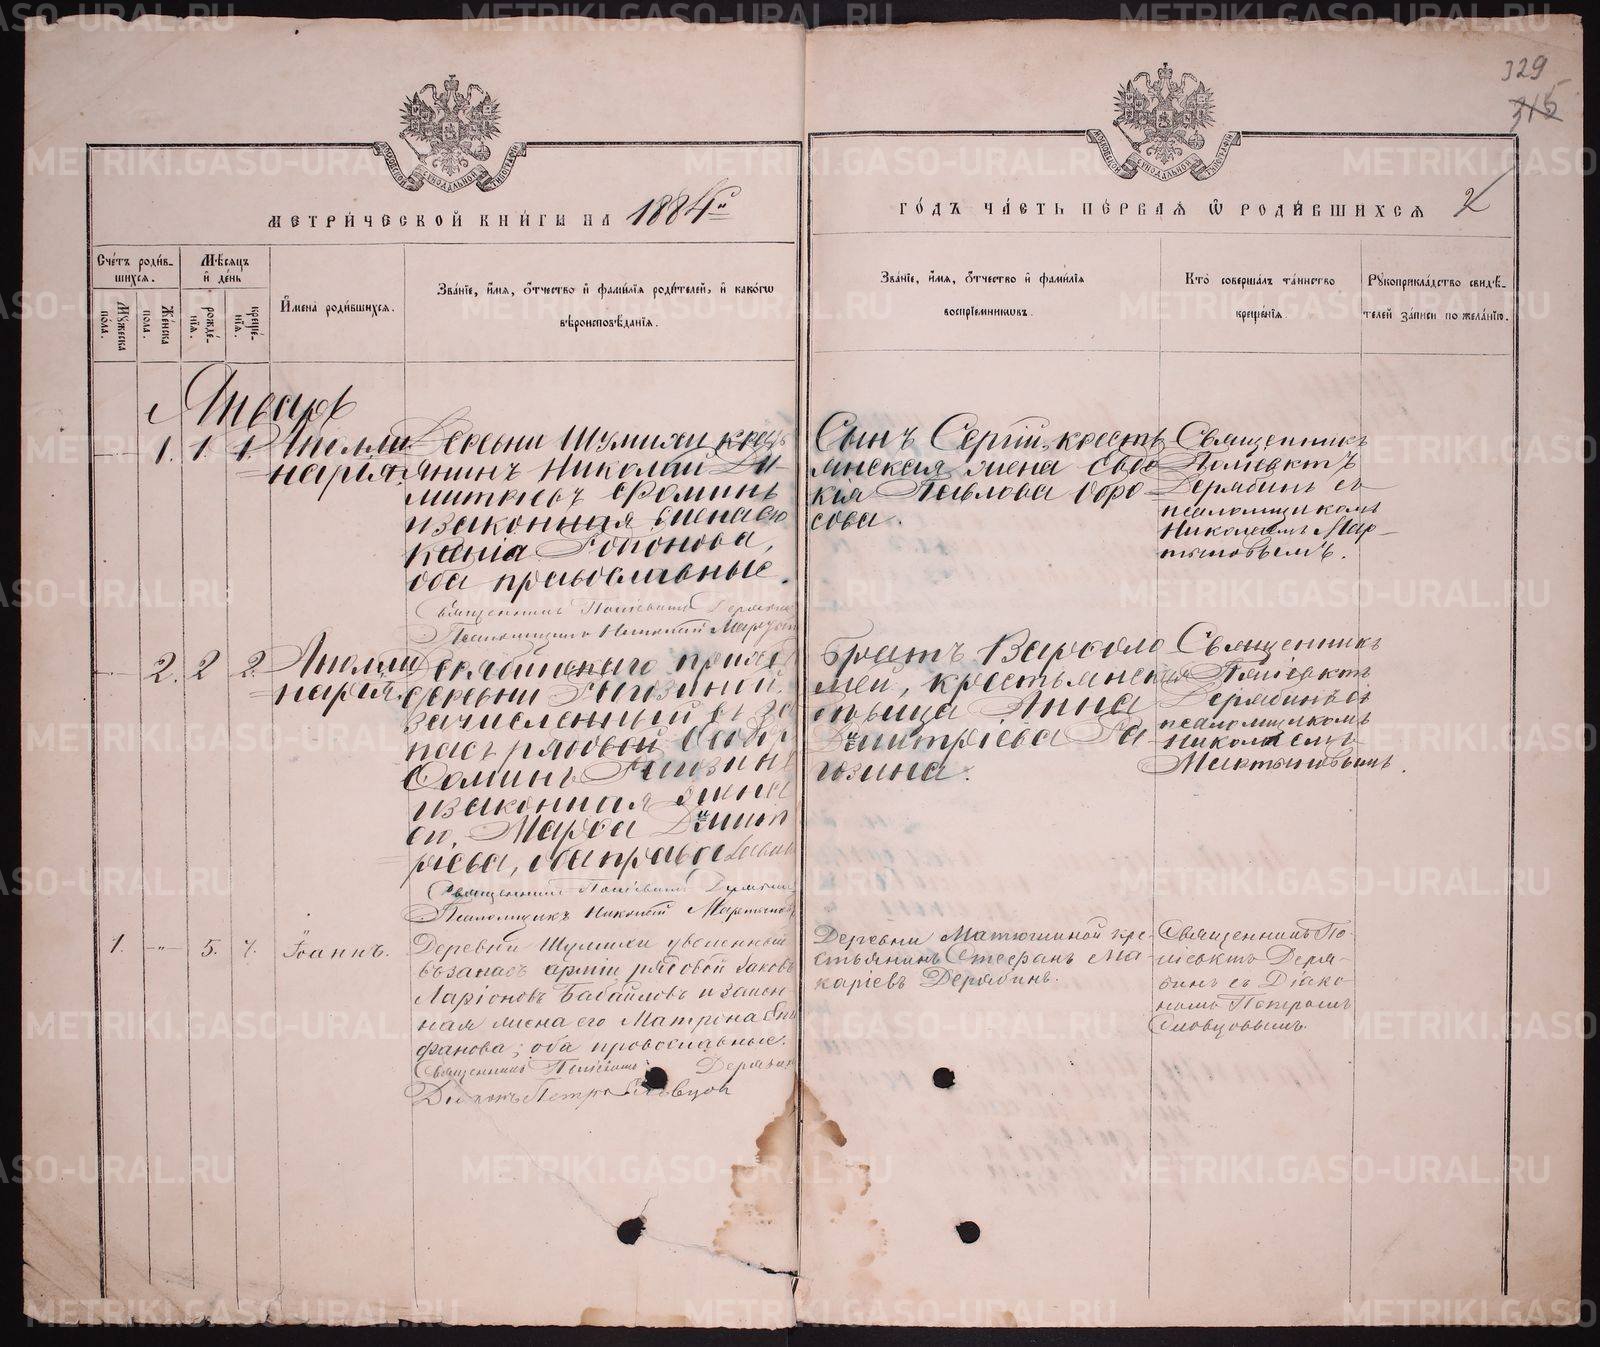 METRIKI.GASO-URAL.RU
329
315
МОСКОВСКОЙ СѴНОДАЛЬНОЙ ТИПОГРАФІИ
МОСКОВСКОЙ СѴНОДАЛЬНОЙ ТИПОГРАФІИ
МЕТРИ́ЧЕСКОЙ КНИ́ГИ НА 1884й
ГО́ДЪ ЧА́СТЬ ПЕ́РВАЯ Ѿ РОДИ́ВШИХСЯ 2
Сче́тъ роди́в-
шихся.
Му́жеска
пола.
Же́нска
пола.
Мѣ́сяцъ
и де́нь
рожде́-
нїя.
креще́-
нїя.
И҆мена̀ роди́вшихся.
Зва́нїе, и҆́мя, ѻ҆́тчество и҆ фами́лїя роди́телей, и҆ како́гѡ
вѣроисповѣ́данїя.
Зва́нїе, и҆́мя, ѻ҆́тчество и҆ фами́лїя
воспрїе́мниковъ.
Кто̀ соверша́лъ та́инство
креще́нїя.
Рукоприкла́дство свидѣ́-
телей за́писи по жела́нїю.
Январь
1. 1 1 Аполли-
нарія.
Деревни Шумихи кресть
янинъ Николай Ди-
митріевъ Ѳоминъ
и законная жена его
Ксенія
оба православные.
Священникъ Поліевктъ Дерябинъ
Псаломщикъ Николай Март
Сынъ Сергій, кресть
янская жена Евдо-
кія Павлова Боро-
сова.
Священникъ
Поліевктъ
Дерябинъ съ
псаломщикомъ
Николаемъ Мар-
тыновымъ.
2. 2 2. Аполли-
нарія.
Дерябинскаго прихо
деревни Рагозиной
зачисленный въ за
пасъ рядовой
Ѳоминъ Рагозинъ
и законная жена
его, Марѳа Димит
ріева, оба православн
Священникъ Поліевктъ Дерябинъ
Псаломщикъ Николай Мартыновъ
Братъ Варѳоло
мей, крестьянская
дѣвица Анна
Димитріева Ра-
гозина.
Священникъ
Поліевктъ
Дерябинъ съ
псаломщикомъ
Николаемъ
Мартыновымъ.
1. -"- 5. 7. Іоаннъ.
Деревни Шумихи уволенный
въ запасъ арміи рядовой Іаковъ
Ларіоновъ Бабайловъ и закон-
ная жена его Матрона Епи
фанова; оба православные.
Священникъ Поліевктъ Дерябинъ
Діаконъ Петръ Словцов
Деревни Матюшиной кре-
стьянинъ Стефанъ Ма-
каріевъ Дерябинъ.
Священникъ По-
ліевктъ Деря-
бинъ съ Діако-
номъ Петромъ
Словцовымъ.